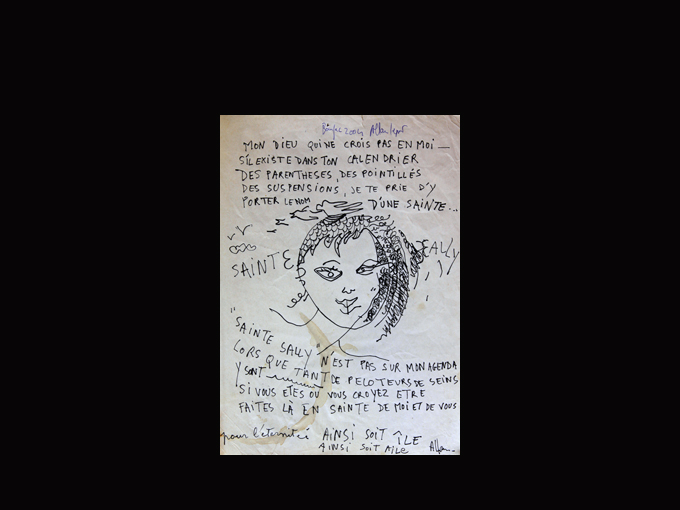 2004
MON DIEU QUI NE CROIS PAS EN MOI —
S'IL EXISTE DANS TON CALENDRIER
DES PARENTHESES, DES POINTILLÉS
DES SUSPENSIONS, JE TE PRIE D'Y
PORTER LE NOM D'UNE SAINTE...
SAINTE SALLY
"SAINTE SALLY"
N'EST PAS SUR MON AGENDA
LORS QUE TANT DE PELOTEURS DE SEINS
Y SONT
SI VOUS ETES OU VOUS CROYEZ ETRE
FAITES LÀ EN SAINTE DE MOI ET DE VOUS
pour l'éternité AINSI SOIT ÎLE
AINSI SOIT AILE